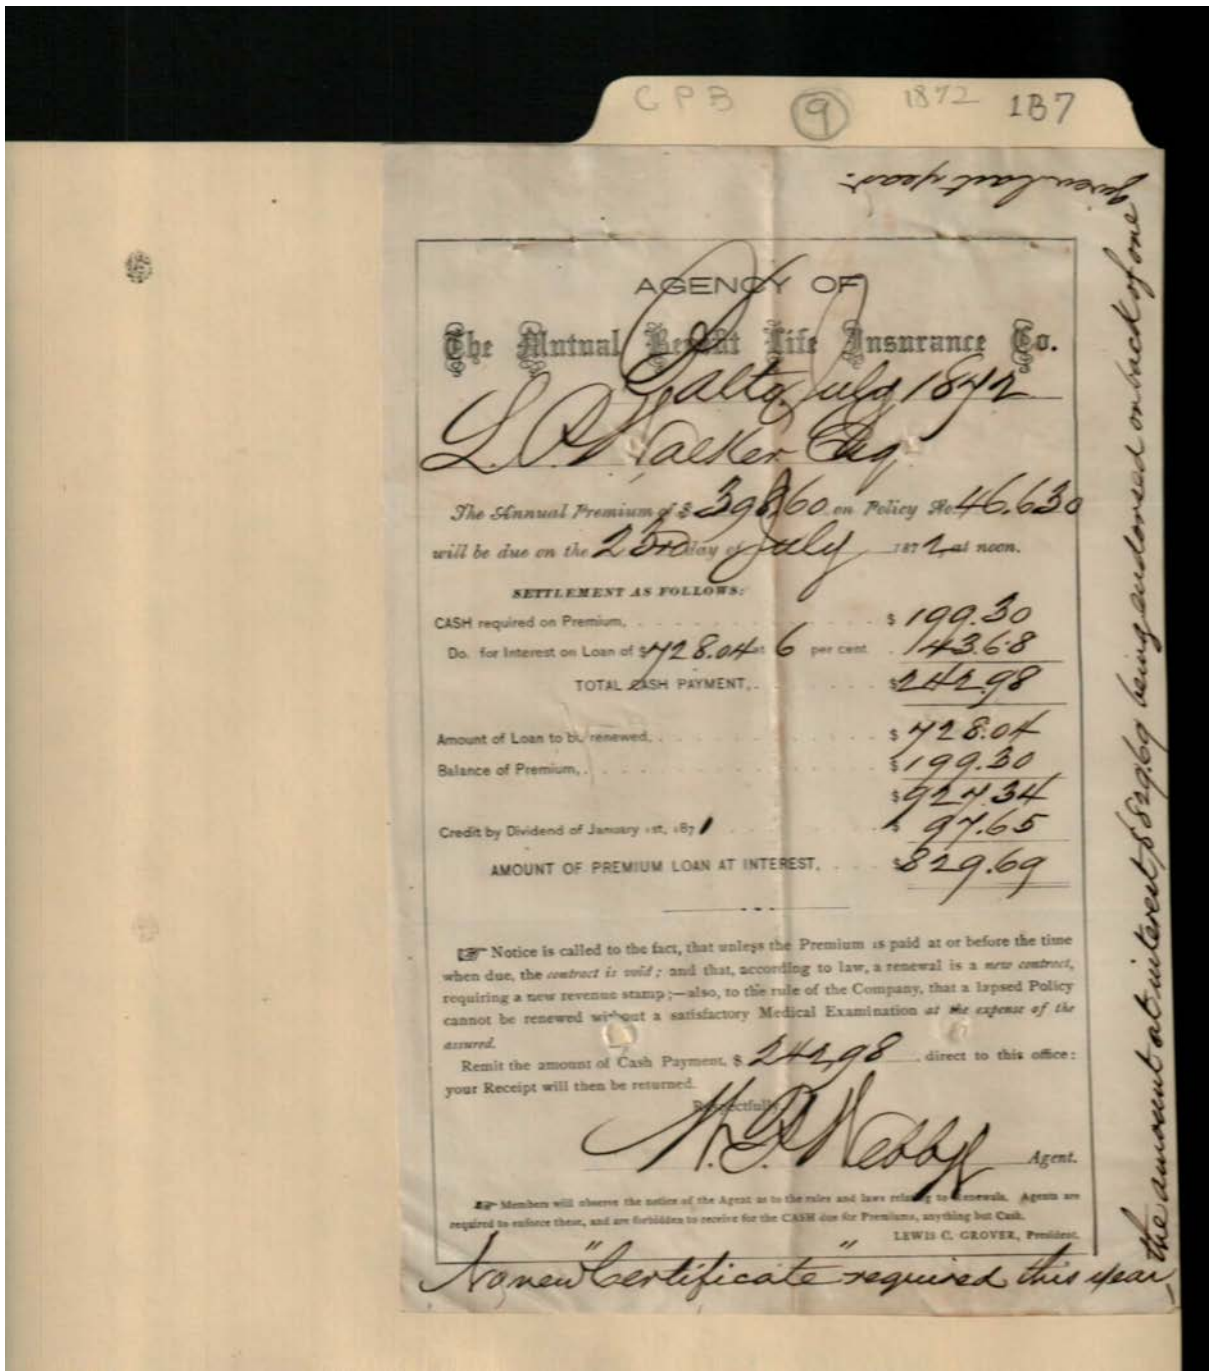 CPB 9 1872 187
AGENCY OF
The Mutual Benefit Life Insurance Co.
Balto. July 1872
L. P. Walker Esq
The Annual Premium of $ 398.60 on Policy No. 46.630
will be due on the 23rd day of July 1872, at noon.
SETTLEMENT AS FOLLOWS:
CASH required on Premium, $ 199.30
Do. for Interest on Loan of $ 728.04 at 6 per cent 43.68
TOTAL CASH PAYMENT, $ 242.98
Amount of Loan to be renewed, $ 728.04
Balance of Premium, $ 199.30
$ 927.34
Credit by Dividend of January 1st, 1871 $ 97.65
AMOUNT OF PREMIUM LOAN AT INTEREST, $ 829.69
☞ Notice is called to the fact, that unless the Premium is paid at or before the time
when due, the contract is void; and that, according to law, a renewal is a new contract,
requiring a new revenue stamp;—also, to the rule of the Company, that a lapsed Policy
cannot be renewed without a satisfactory Medical Examination at the expense of the
assured.
Remit the amount of Cash Payment, $ 242.98 direct to this office:
your Receipt will then be returned.
Respectfully
Agent.
☞ Members will observe the notice of the Agent as to the rules and laws relating to Renewals. Agents are
required to enforce these, and are forbidden to receive for the CASH due for Premiums, anything but Cash.
LEWIS C. GROVER, President.
No new "Certificate" required this year,
the amount at interest $829.69 being endorsed on back of one
given last year.